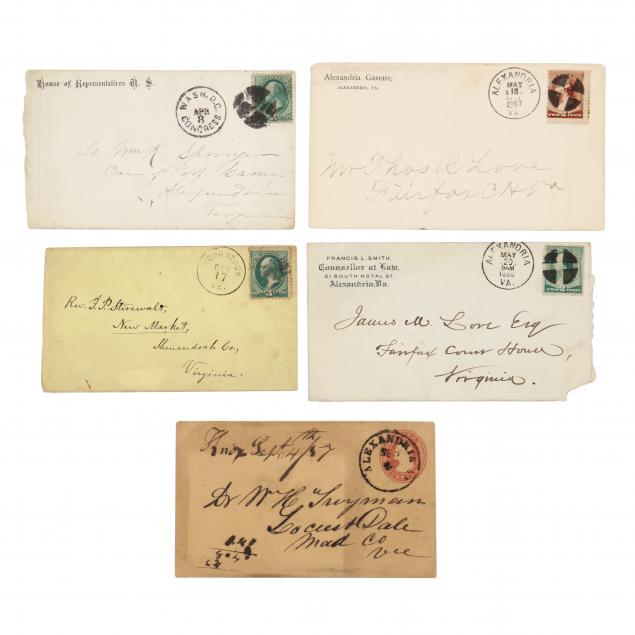 House of Representatives U. S.
WASH. D.C.
APR
8
CONGRESS
Lt. Wm R. Springer
Care of Prof. Carne
Alexandria
Virginia
Alexandria Gazette,
ALEXANDRIA, VA.
ALEXANDRIA
MAY
18
1887
VA.
Mr Thos R. Love
Fairfax C.H. Va
WOODSTOCK
17
VA.
Rev. J. P. Stirewalt,
New Market,
Shenandoah Co,
Virginia.
FRANCIS L. SMITH,
Counsellor at Law,
21 SOUTH ROYAL ST.
Alexandria, Va.
ALEXANDRIA
MAY
20
9AM
1888
VA.
James M. Love Esq
Fairfax Court House,
Virginia.
Sept 4th/57
ALEXANDRIA
Dr W H
Locust Dale
Mad Co